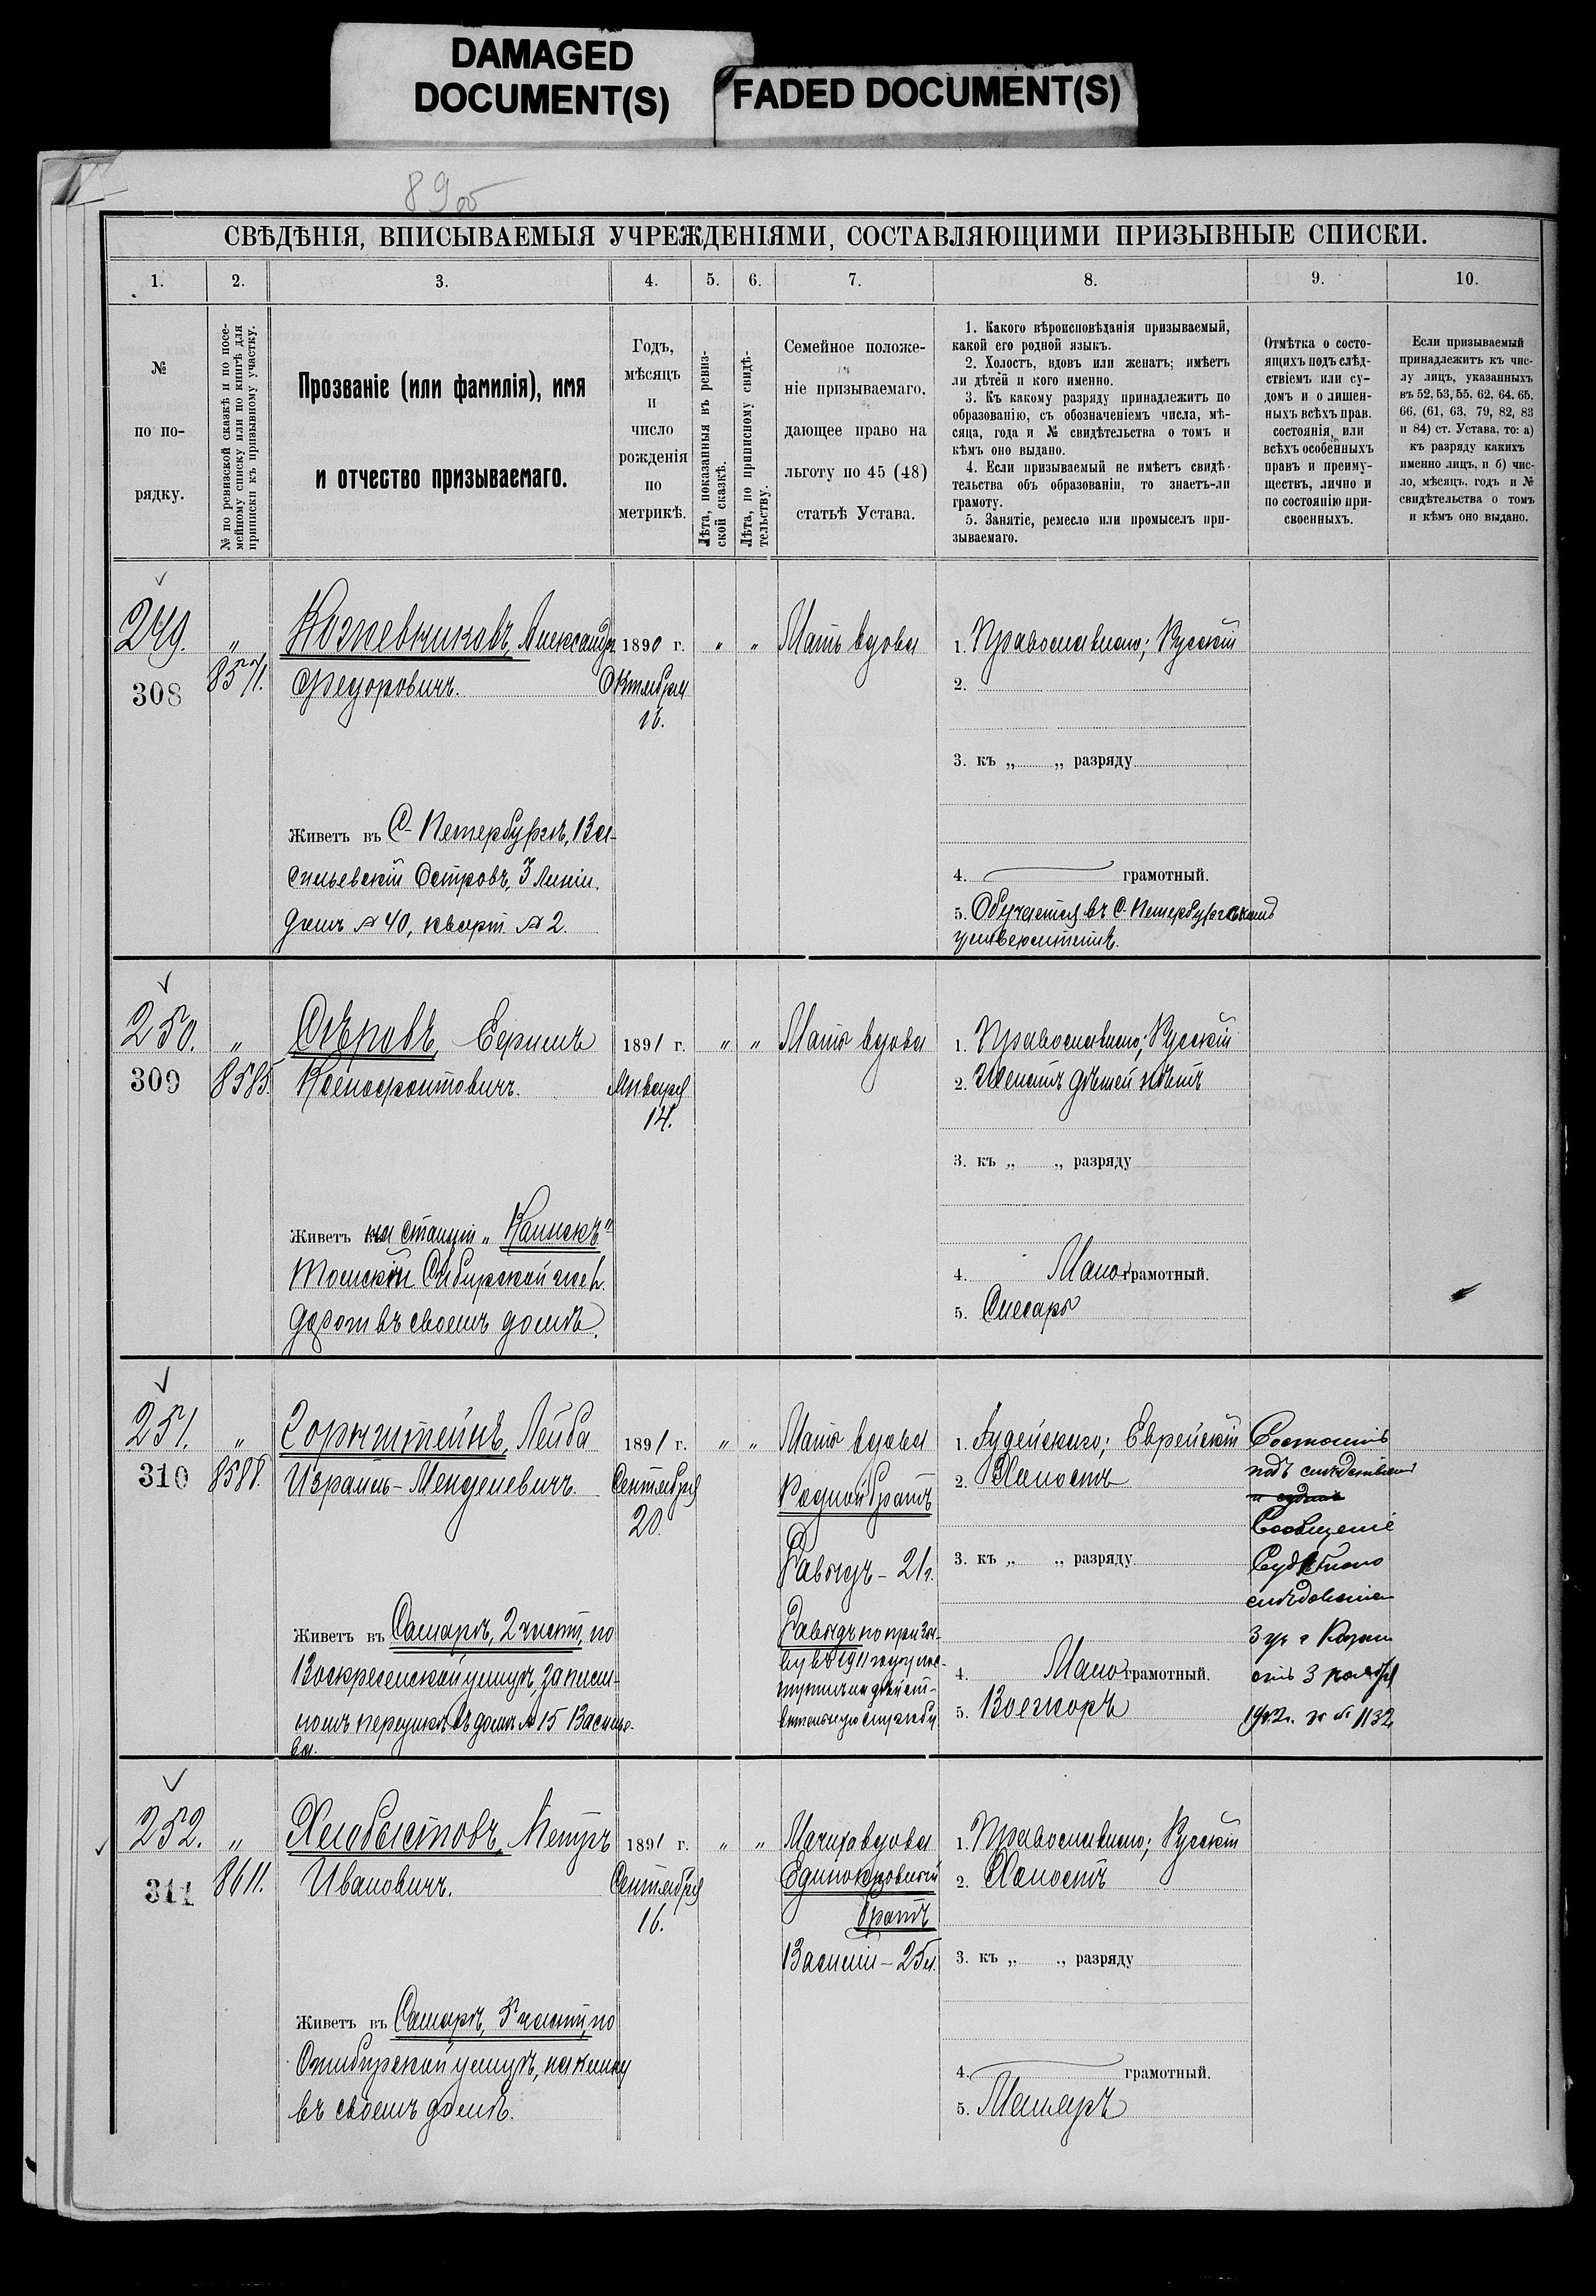 DAMAGED
DOCUMENT(S)
FADED DOCUMENT(S)
89об
СВѢДѢНІЯ, ВПИСЫВАЕМЫЯ УЧРЕЖДЕНІЯМИ, СОСТАВЛЯЮЩИМИ ПРИЗЫВНЫЕ СПИСКИ.
1. 2. 3. 4. 5. 6. 7. 8. 9. 10.
№
по по-
рядку.
№ по ревизской сказкѣ и по посе-
мейному списку или по книгѣ для
приписки къ призывному участку.
Прозваніе (или фамилія), имя
и отчество призываемаго.
Годъ,
мѣсяцъ
и
число
рожденія
по
метрикѣ.
Лѣта, показанныя въ ревиз-
ской сказкѣ.
Лѣта, по приписному свидѣ-
тельству.
Семейное положе-
ніе призываемаго,
дающее право на
льготу по 45 (48)
статьѣ Устава.
1. Какого вѣроисповѣданія призываемый,
какой его родной языкъ.
2. Холостъ, вдовъ или женатъ; имѣетъ
ли дѣтей и кого именно.
3. Къ какому разряду принадлежитъ по
образованію, съ обозначеніемъ числа, мѣ-
сяца, года и № свидѣтельства о томъ и
кѣмъ оно выдано.
4. Если призываемый не имѣетъ свидѣ-
тельства объ образованіи, то знаетъ-ли
грамоту.
5. Занятіе, ремесло или промыселъ при-
зываемаго.
Отмѣтка о состо-
ящихъ подъ слѣд-
ствіемъ или су-
домъ и о лишен-
ныхъ всѣхъ прав.
состоянія, или
всѣхъ особенныхъ
правъ и преиму-
ществъ, лично и
по состоянію при-
своенныхъ.
Если призываемый
принадлежитъ къ чис-
лу лицъ, указанныхъ
въ 52, 53, 55, 62, 64, 65,
66, (61, 63, 79, 82, 83
и 84) ст. Устава, то: а)
къ разряду какихъ
именно лицъ, и б) чис-
ло, мѣсяцъ, годъ и №
свидѣтельства о томъ
и кѣмъ оно выдано.
249.
308
„
8571.
Кожевниковъ, Александръ
Федоровичъ.
Живетъ въ С-Петербургѣ, Ва-
сильевскій Островъ, 3 линіи.
домъ № 40, кварт. № 2.
1890 г.
Октября
16.
„ „
Мать вдова
1. Православнаго; Русскій
2.
3. къ „ „ разряду
4. грамотный.
5. Обучается въ С. Петербургскомъ
университетѣ.
250.
309
„
8585.
Сѣровъ,
Ксенофонтовичъ.
Живетъ на станціи „Каинскъ"
Сибирской жел.
дороги въ своемъ домѣ.
1891 г.
Января
14.
„ „
Мать вдова
1. Православнаго; Русскій
2. Женатъ дѣтей нѣтъ
3. къ „ „ разряду
4. Малограмотный.
5. Слесарь
251.
310
„
8588.
Горнштейнъ, Лейба
Израиль-Менделевичъ.
Живетъ въ Самарѣ, 2 части, по
Воскресенской улицѣ,
переулкѣ въ домѣ № 15 Василье-
ва.
1891 г.
Сентября
20.
„ „
Мать вдова
Родной братъ
Давыдъ - 21 г.
Давыдъ по при зы-
ву въ 1911 году пос-
тупилъ на дѣйст-
вительную службу
1. Іудейскаго; Еврейскій
2. Холостъ
3. къ „ „ разряду
4. Малограмотный.
5. Вояжоръ
Состоитъ
подъ слѣдствіемъ
Сообщеніе
Судебнаго
слѣдователя
3 уч. г. Казани
отъ 3 ноября
1912 г. за № 1132
252.
311
„
8611.
Хлобыстовъ, Петръ
Ивановичъ.
Живетъ въ Самарѣ, 5 части, по
Симбирской улицѣ,
въ своемъ домѣ.
1891 г.
Сентября
16.
„ „
Мачиха вдова
Единокровный
братъ
Василій - 25 л.
1. Православнаго; Русскій
2. Холостъ
3. къ „ „ разряду
4. грамотный.
5. Маляръ